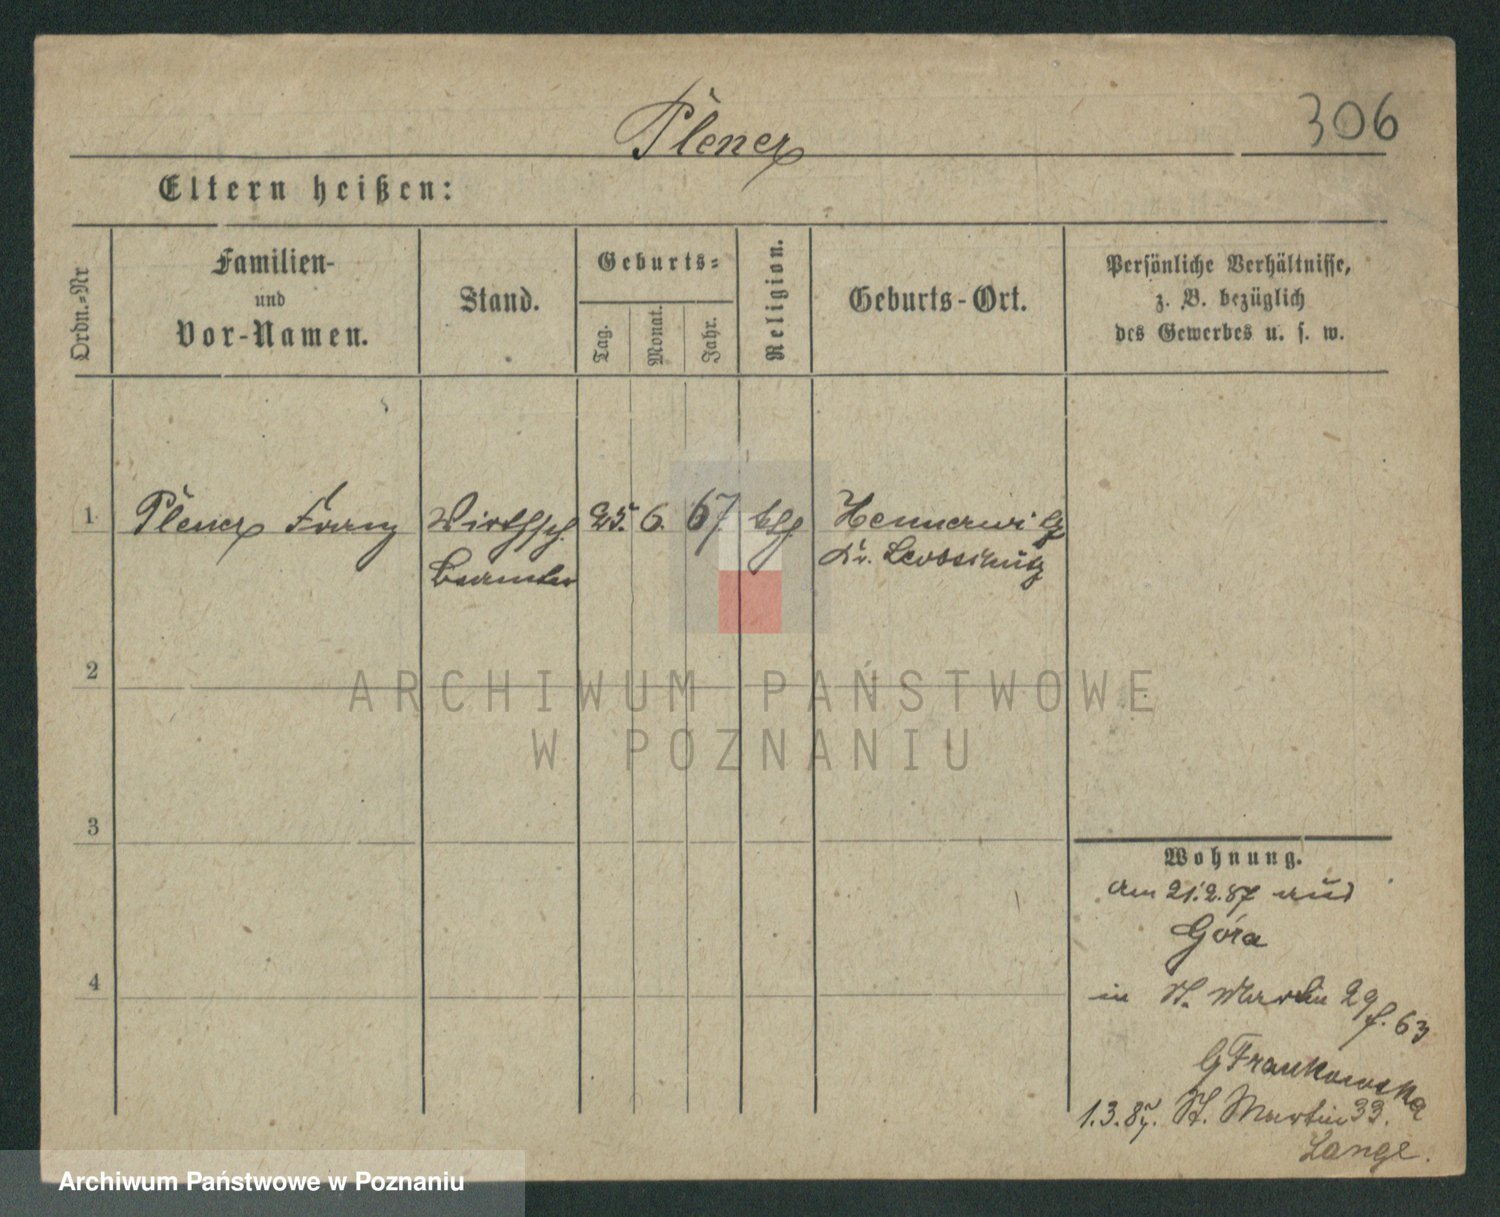 306
Plener
Eltern heißen:
Ordn.=Nr
Familien-
und
Vor-Namen.
Stand.
Geburts=
Tag.
Monat.
Jahr.
Religion.
Geburts-Ort.
Persönliche Verhältnisse,
z. B. bezüglich
des Gewerbes u. s. w.
1 Plener Franz Wirthsch. 25. 6. 67. kth Hennerwitz
Beamter Kr. Leobschütz
2
3
4
ARCHIWUM PAŃSTWOWE
W POZNANIU
Wohnung.
am 21.2.87 aus
Góra
in St. Martin 29
f. 63
Frankowska
1.3.87. St. Martin 33.
Lange.
Archiwum Państwowe w Poznaniu